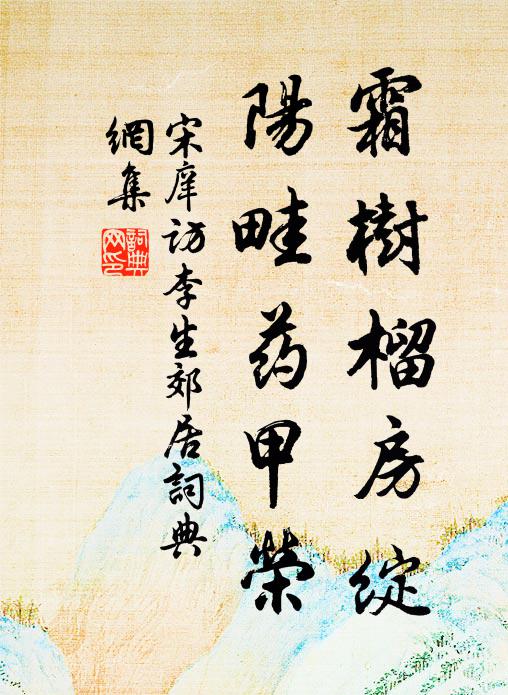 霜樹榴房綻
陽畦药甲榮
宋庠访李生郊居詞典
網集
詞典
网印